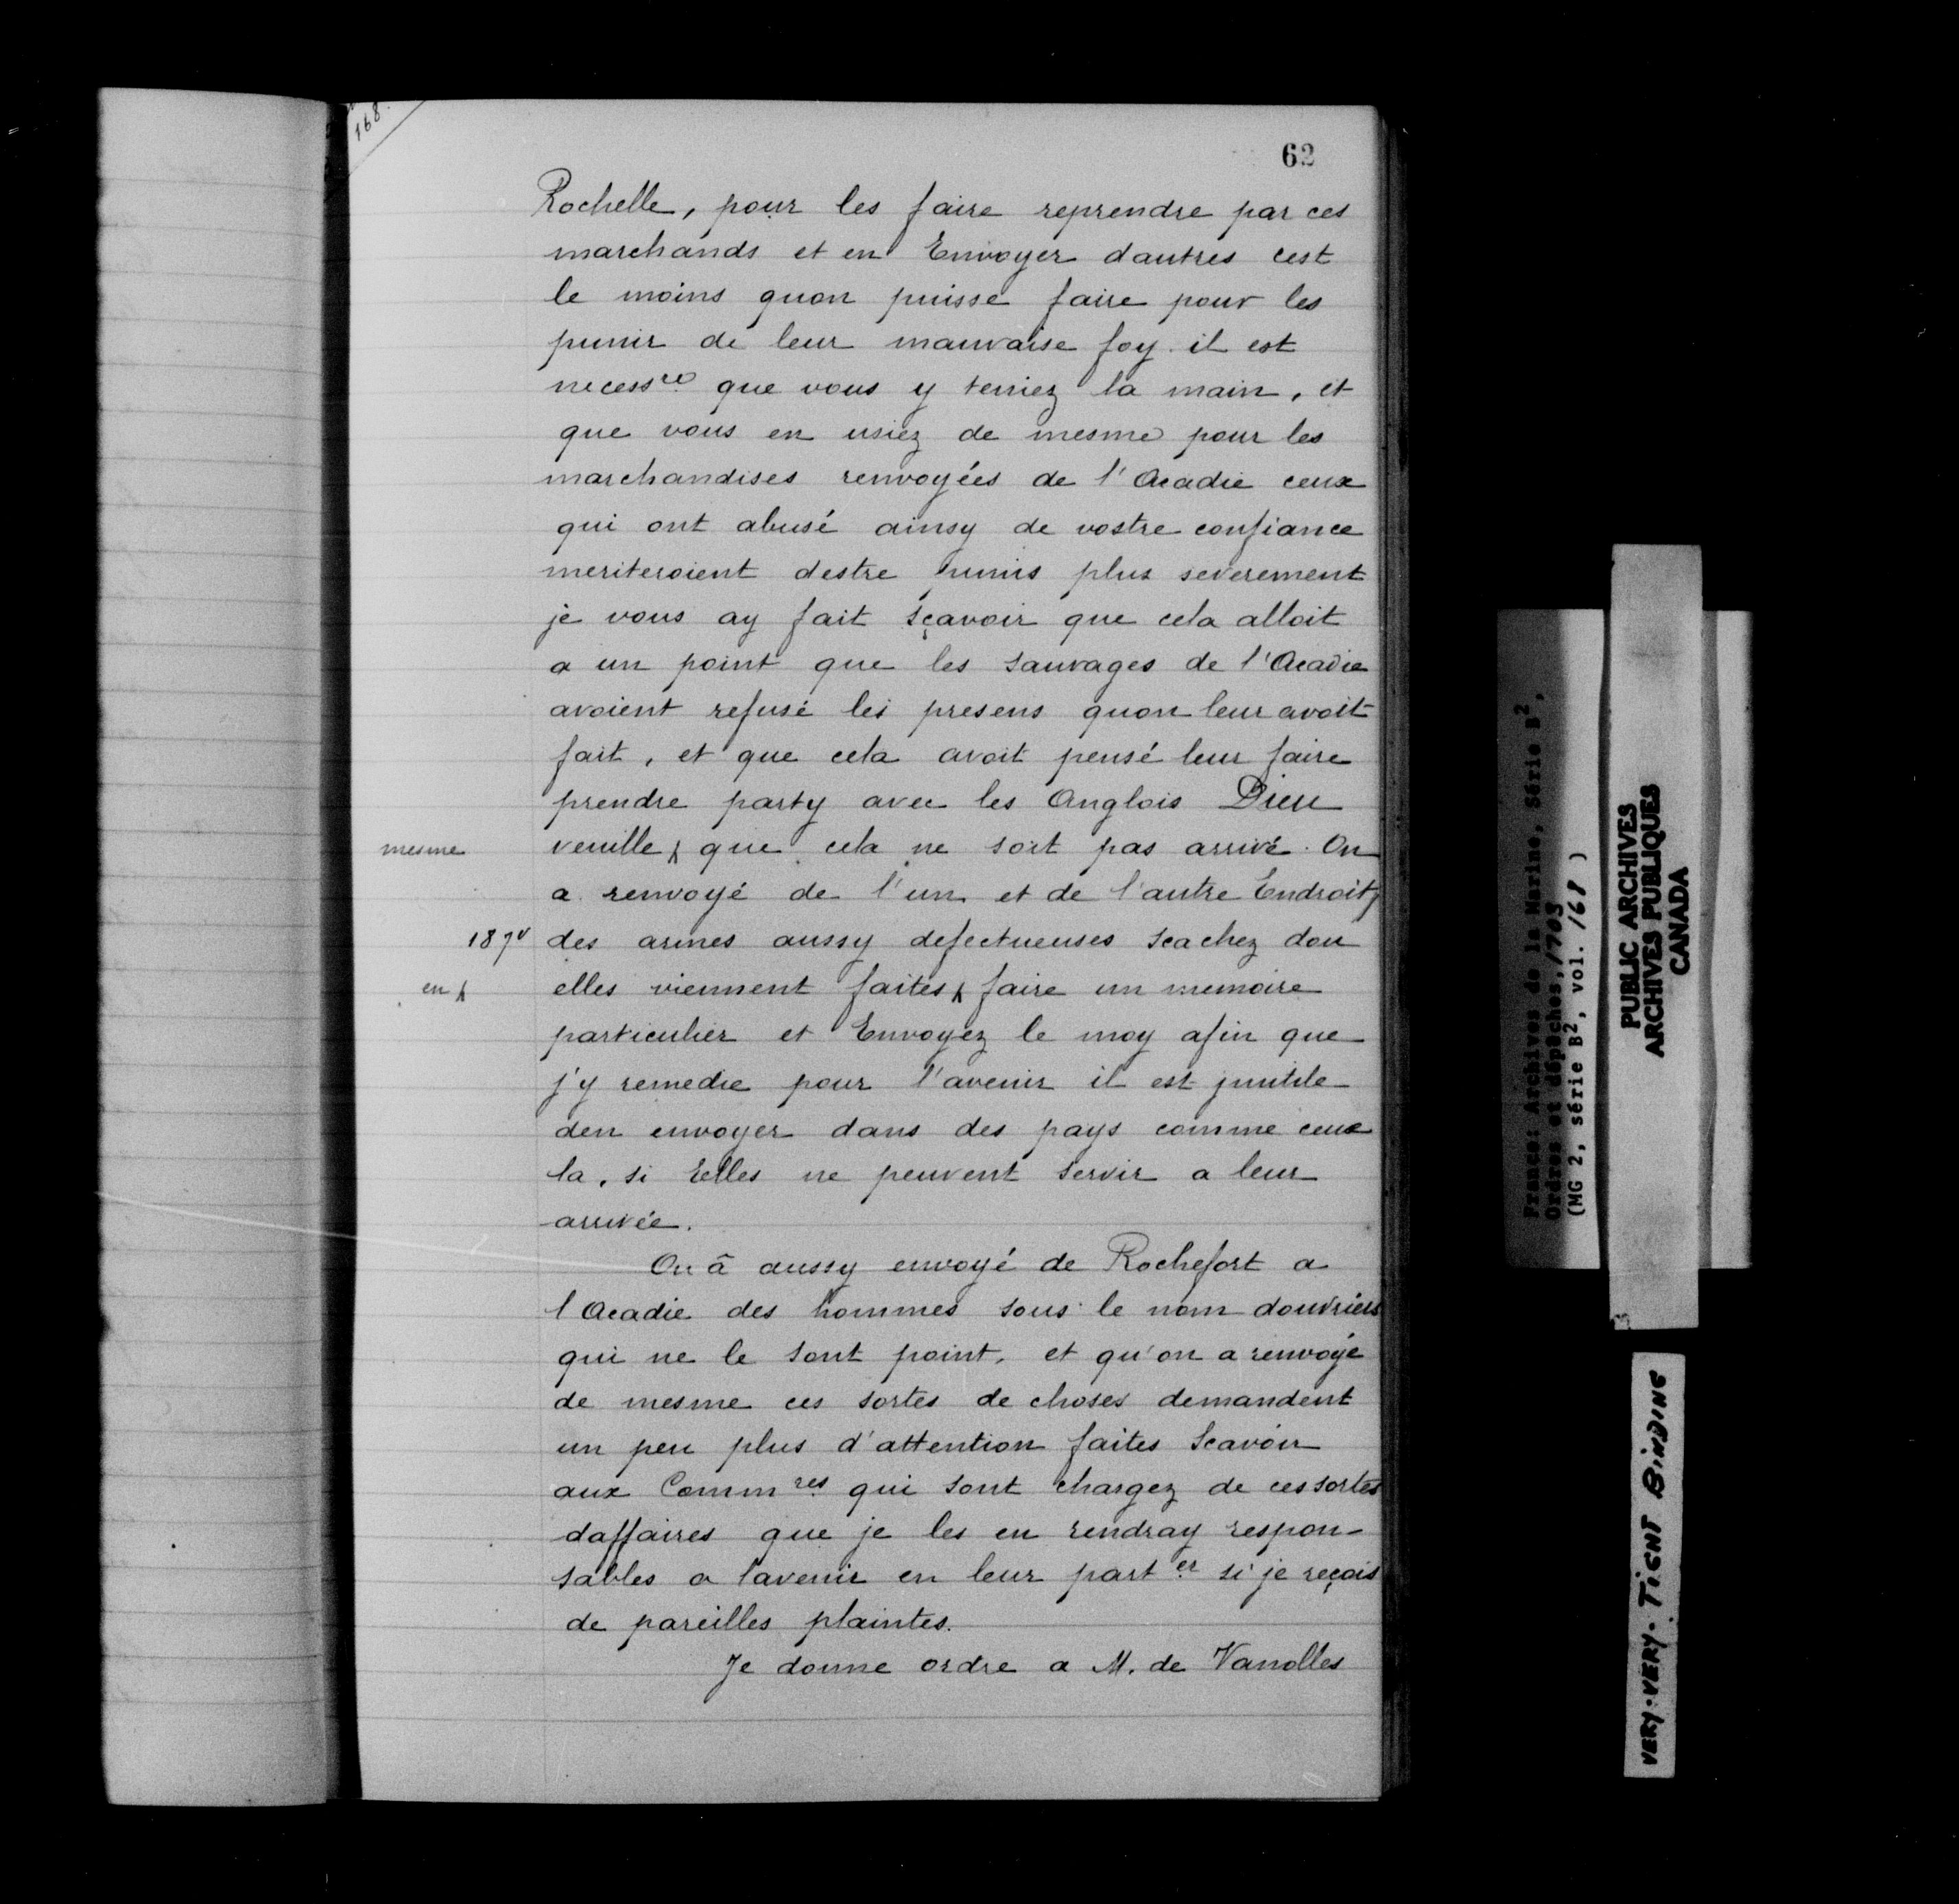 168.
62
Rochelle, pour les faire reprendre par ces
marchands et en Envoyer dautres cest
le moins quon puisse faire pour les
punir de leur mauvaise foy. il est
necessre que vous y teniez la main, et
que vous en usiez de mesme pour les
marchandises renvoyées de l'Acadie ceux
qui ont abusé ainsy de vostre confiance
meriteroient destre punis plus severement
je vous ay fait sçavoir que cela alloit
a un point que les sauvages de l'Acadie
avoient refusé les presens quon leur avoit
fait, et que cela avoit pensé leur faire
prendre party avec les Anglois Dieu
mesme
veuille que cela ne soit pas arrivé. On
a renvoyé de l'un et de l'autre Endroit
187v
des armes aussy defectueuses scachez dou
en
elles viennent faites faire un memoire
particulier et Envoyez le moy afin que
j'y remedie pour l'avenir il est jnutile
den envoyer dans des pays comme ceux
la, si Elles ne peuvent servir a leur
arrivée.
On â aussy envoyé de Rochefort a
l Acadie des hommes sous le nom douvriers
qui ne le sont point, et qu'on a renvoyé
de mesme ces sortes de choses demandent
un peu plus d'attention faites Scavoir
aux Commres qui sont chargez de ces sortes
daffaires que je les en rendray respon-
sables a lavenir en leur part er si je reçois
de pareilles plaintes.
Je donne ordre a M. de Vanolles
France: Archives de la Marine, Série B2,
Ordres et dépêches, 1703
(MG 2, série B2, vol. 168 )
PUBLIC ARCHIVES
ARCHIVES PUBLIQUES
CANADA
VERY-VERY-TIGHT BINDING